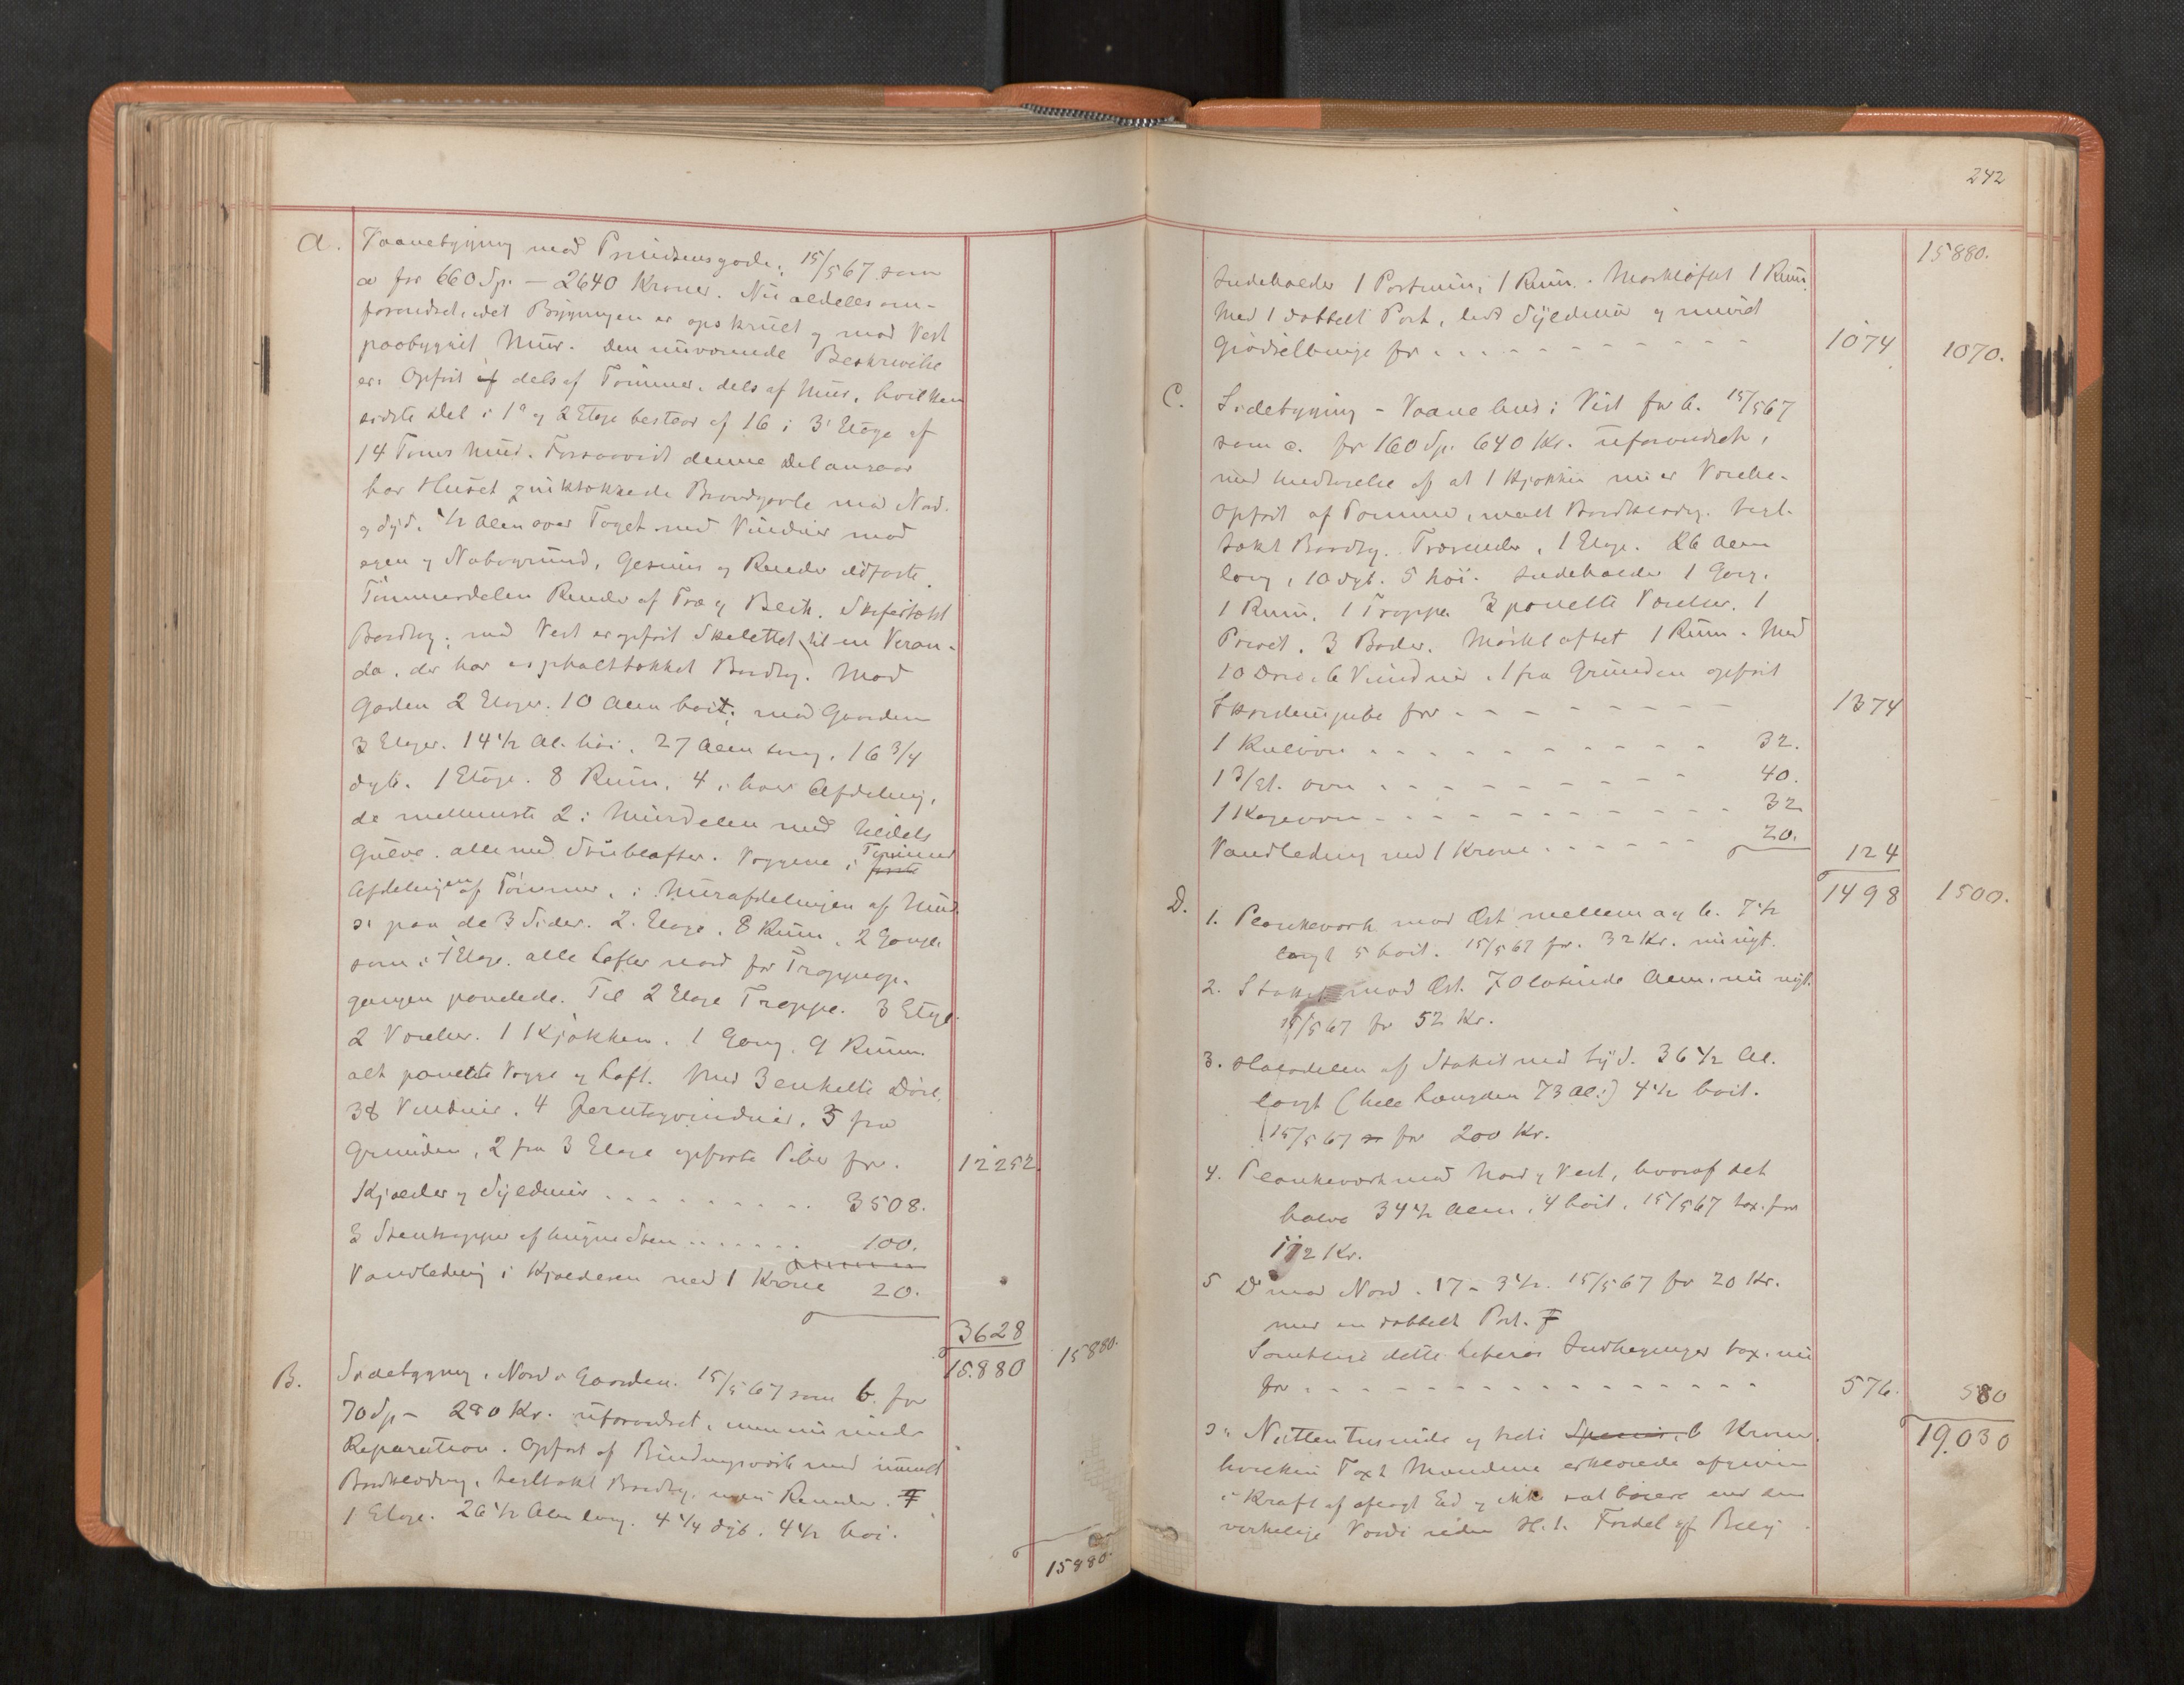 a.
Vaanebygning mod Prindsensgade, 15/5 67 som
a for 660 Sp. – 2640 Kroner. Nu aldeles om-
forandret, idet Bygningen er opskruet og mod Vest
paabygget Muur. Den nuværende Beskrivelse
er: Opført dels af Tømmer, dels af Muur, hvilken
sidste Del i 1ste og 2 Etage bestaar af 16 i 3die Etage af
14 Toms Muur. Forsaavidt denne Del angaar
har Huset zinktækkede Brandgavle mod Nord
og Syd, 1/2 Alen over Taget med Vinduer mod
egen og Nabogrund, Gesims og Render ildfaste.
Tømmerdelen Render af Træ og Blik. Skifertækt
Bordtag; mod Vest er opført Skelettet til en Veran-
da, der har asphalttækket Bordtag. Mod
Gaden 2 Etager. 10 Alen høit; mod Gaarden
3 Etager. 14 1/2 Al. høi. 27 Alen lang. 16 3/4
dyb. 1 Etage. 8 Rum, 4 i hver Afdeling,
de mellemste 2 i Murdelen med
Gulve. alle med Stukslofter. Væggene i Tømmer
Afdelingen af Tømmer, i Murafdelingen af Muur
paa de 3 Sider. 2. Etage. 8 Rum, 2 Gange
som i 1 Etage. alle Lofter nord for Trappeop-
gangen panelede. Til 2 Etage Trappe. 3 Etage
2 Værelser. 1 Kjøkken. 1 Gang. 9 Rum.
alt panelte Vægge og Loft. Med 3 enkelte Døre,
38 Vinduer, 4 Jerntagvinduer, 5 fra
Grunden, 2 fra 3 Etage opførte Piber for. 12252.
Kjælder og Syldmur . . . . . . . 3508.
3 Stentrapper af hugne Sten . . . . . . 100.
Vandledning i Kjælderen med 1 Krane 20.
3628
15.880 15880.
B.
Sidebygning, Nord i Gaarden. 15/5 67 som b. for
70 Sp – 280 Kr. uforandret, men nu under
Reparation. Opført af Bindingsværk med umalt
Bordklædning, tegltækt Bordtag, uden Render.
1 Etage. 26 1/2 Alen lang. 4 1/4 dyb. 4 1/2 høi.
15880.
242
15880.
Indeholder 1 Portrum, 1 Rum. Mørkloftet 1 Rum.
Med 1 dobbelt Port, lidt Syldmur og muret
Gjødselbinge for . . . . . . . . . 1074 1070.
C.
Sidebygning – Vaanehus i Vest for b. 15/5 67
som c. for 160 Sp. 640 Kr. uforandret,
med Undtagelse af at 1 Kjøkken nu er Værelse.
Opført af Tømmer, malt Bordklædng. tegl-
tækt Bordtag. Trærender, 1 Etage. 26 Alen
lang, 10 dyb. 5 høi. Indeholder 1 Gang.
1 Rum. 1 Trappe 3 panelte Værelser. 1
Privet. 3 Boder. Mørkloftet 1 Rum. Med
10 Døre, 6 Vinduer, 1 fra Grunden opført
Skorstenspibe for . . . . . . . . 1374
1 Kulovn . . . . . . . . . . . 32.
1 3/Et. ovn . . . . . . . . . . 40.
1 Kogeovn . . . . . . . . . . 32
Vandledning med 1 Krane . . . . . . 20. 124
1498 1500.
D.
1. Plankeværk mod Øst mellem a og b. 7 1/2
langt 5 høit. 15/5 67 for 32 Kr. nu nyt.
2. Stakit mod Øst. 70 løbende Alen. nu nyt.
15/5 67 for 52 Kr.
3. Halvdelen af Stakit mod Syd. 36 1/2 Al.
langt (hele Længden 73 Al:) 4 1/2 høit.
15/5 67 for 200 Kr.
4. Plankeværk mod Nord og Vest, hvoraf det
halve 34 1/2 Alen, 4 høit. 15/5 67 tax. for
112 Kr.
5 Do mod Nord. 17 – 3 1/2. 15/5 67 for 20 Kr.
med en dobbelt Port.
Samtlige dette Indhegninger tax. nu
for . . . . . . . . . . . . . . . 576. 580
19.030
Nittentusinde og tredive Kroner,
hvilken Taxt Mændene erklærede afgiven
i Kraft af aflagt Ed og ikke sat høiere end den
virkelige Værdi uden